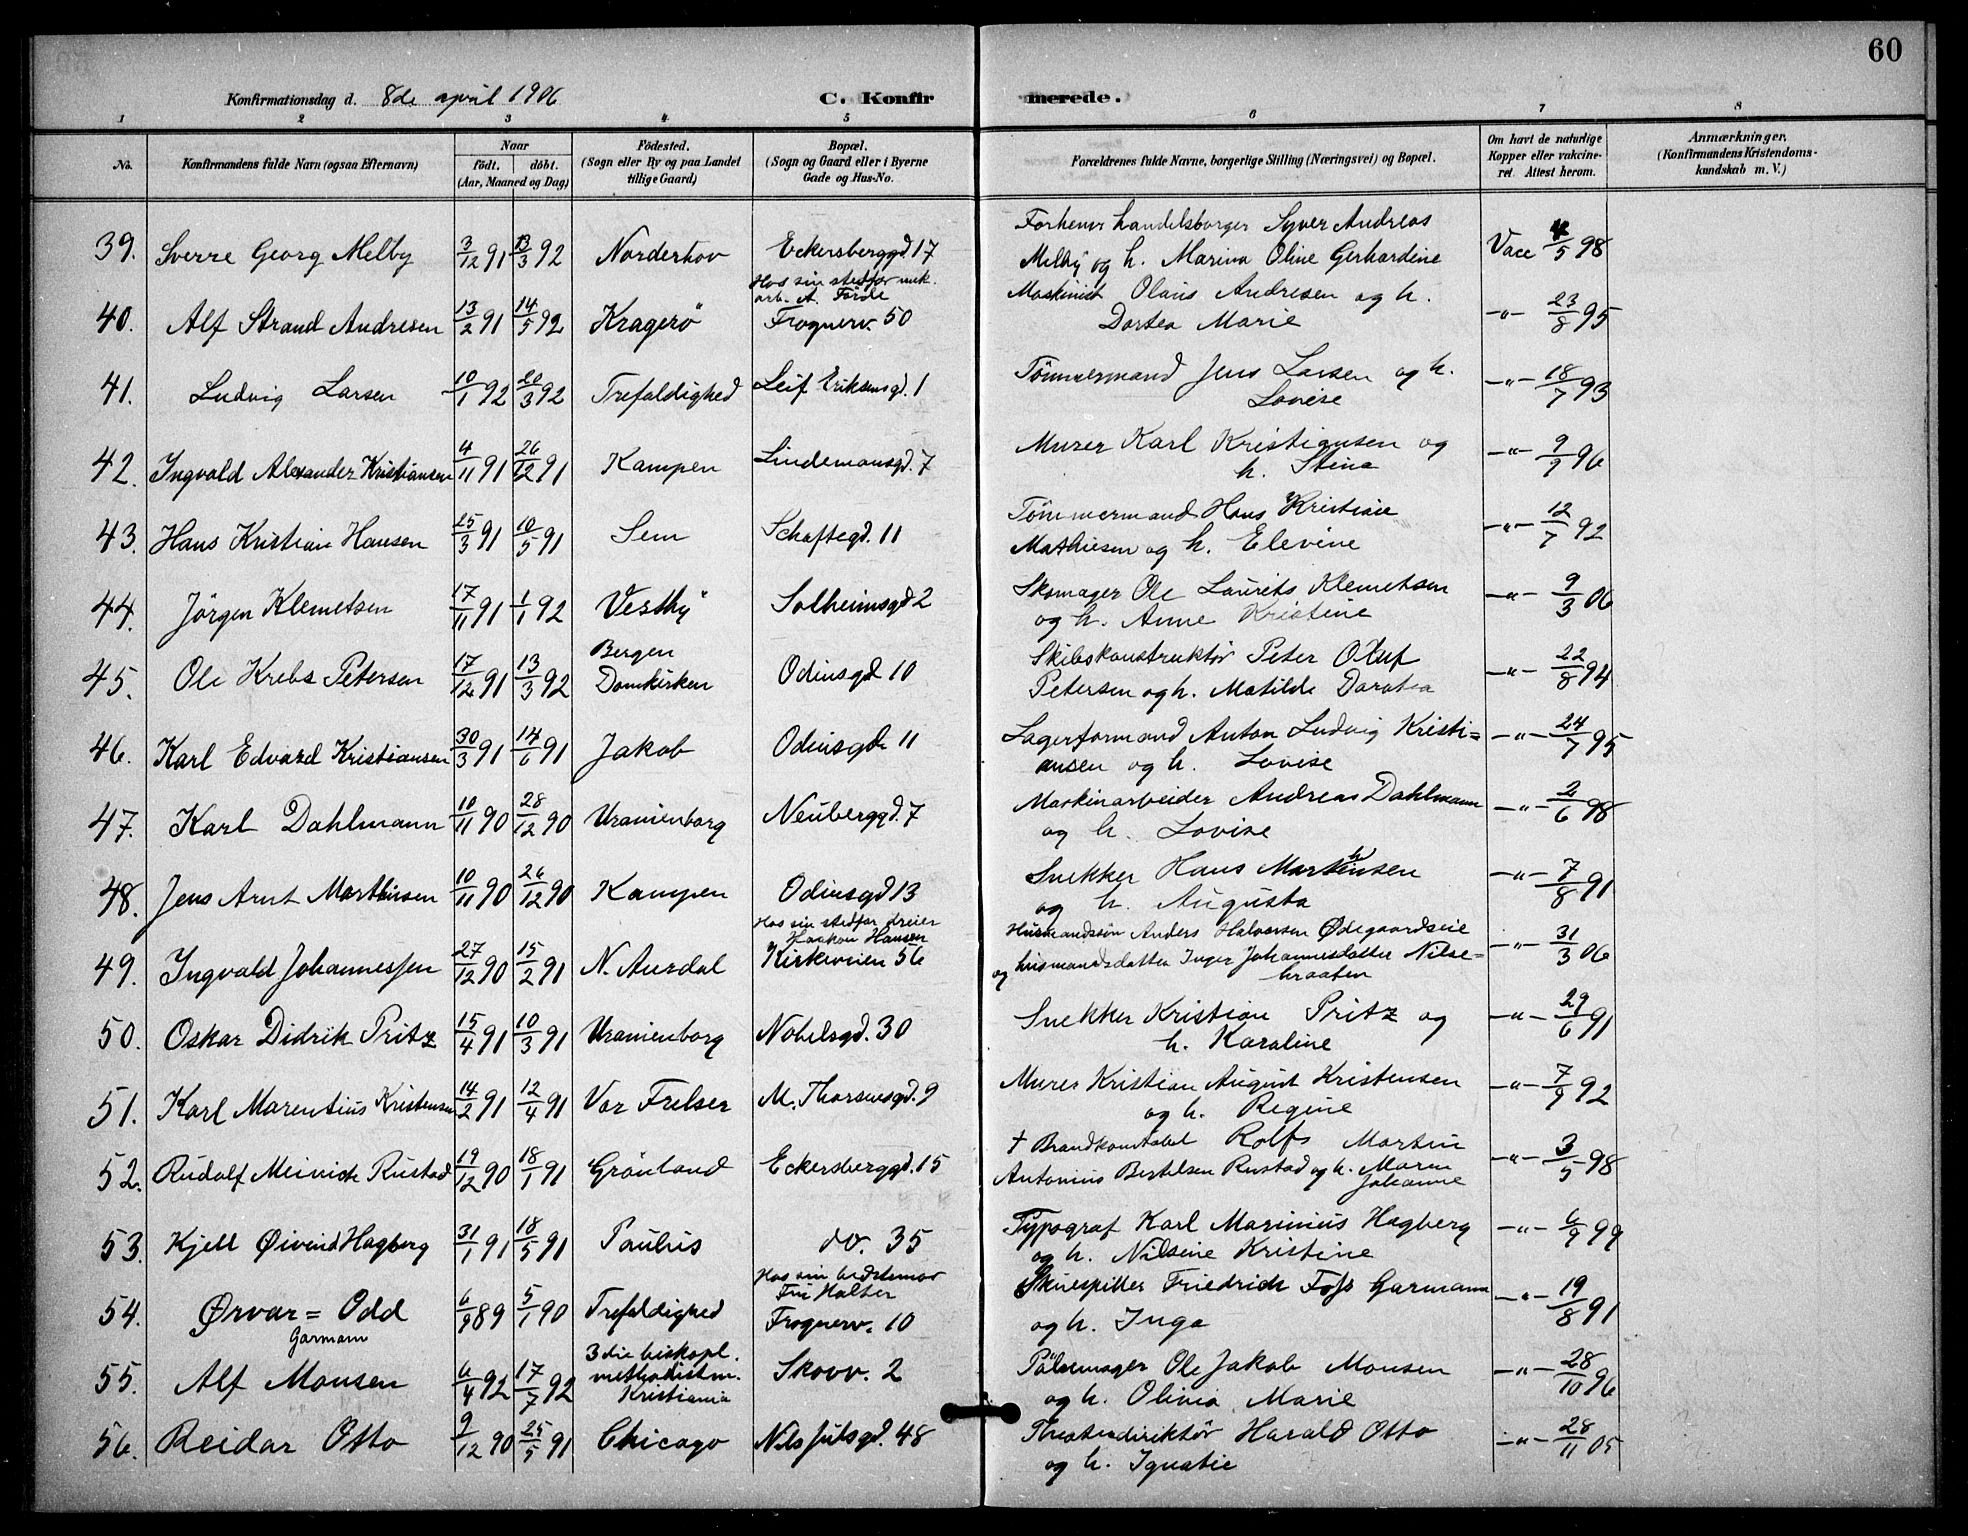 60
Konfirmationsdag d. 8de april 1906
C. Konfirmerede.
1 2 3 4 5 6 7 8
No. Konfirmandens fulde Navn (ogsaa Efternavn) Naar født. døbt. (Aar, Maaned og Dag) Fødested. (Sogn eller By og paa Landet tillige Gaard) Bopæl. (Sogn og Gaard eller i Byerne Gade og Hus-No. Forældrenes fulde Navne, borgerlige Stilling (Næringsvei) og Bopæl. Om havt de naturlige Kopper eller vakcineret. Attest herom. Anmærkninger. (Konfirmandens Kristendomskundskab m. V.)
39. Sverre Georg Melby 3/12 91 13/3 92 Norderhov Eckersberggd. 17 Forhenv. Handelsborger Syver Andreas
Melby og h. Marina Oline Gerhardine Vacc 4/5 98
40. Alf Strand Andresen 13/2 91 14/5 92 Kragerö Hos sin stedfar mek.
arb. A. Förde
Frognerv. 50 Maskinist Olaus Andresen og h.
Dortea Marie -"- 23/8 95
41. Ludvig Larsen 10/1 92 20/3 92 Trefoldighed Leif Eriksensgd. 1 Tömmermand Jens Larsen og h.
Lovise -"- 18/7 93
42. Ingvald Alexander Kristiansen 4/11 91 26/12 91 Kampen Lindemansgd. 7 Murer Karl Kristiansen og
h. Stina -"- 9/9 96
43. Hans Kristian Hansen 25/3 91 10/5 91 Sem Schaftegd. 11 Tömmermand Hans Kristian
Mathiesen og h. Elevine -"- 12/7 92
44. Jörgen Klemetsen 17/11 91 1/1 92 Vestby Solheimsgd 2 Skomager Ole Laurits Klemetsen
og h. Anne Kristine -"- 9/3 06
45. Ole Krebs Petersen 17/12 91 13/3 92 Bergen
Domkirken Odinsgd 10 Skibskonstruktör Peter Oluf
Petersen og h. Matilde Dorotea -"- 22/8 94
46. Karl Edvard Kristiansen 30/3 91 14/6 91 Jakob Odinsgd. 11 Lagerformand Anton Ludvig Kristi=
ansen og h. Lovise -"- 24/7 95
47. Karl Dahlmann 10/11 90 28/12 90 Uranienborg Neuberggd. 7 Maskinarbeider Andreas Dahlmann
og h. Lovise -"- 2/6 98
48. Jens Arnt Marthinsen 10/11 90 26/12 90 Kampen Odinsgd 13 Snekker Hans Marthinsen
og h. Augusta -"- 7/8 91
49. Ingvald Johannessen 27/12 90 15/2 91 N. Aurdal Hos sin stedfar dreier
Haakon Hansen
Kirkeveien 56 Husmandssön Anders Halvorsen Ødegaardseie
og husmandsdatter Inger Johannesdatter Nilse=
braaten -"- 31/3 06
50. Oskar Didrik Pritz 15/4 91 10/3 91 Uranienborg Nobelsgd. 30 Snekker Kristian Pritz og
h. Karoline -"- 29/6 91
51. Karl Marentius Kristensen 14/2 91 12/4 91 Vor Frelser M. Thorsensgd. 9 Murer Kristian August Kristensen
og h. Regine -"- 7/9 92
52. Rudolf Meinich Rustad 19/12 90 18/1 91 Grönland Eckersberggd. 15 † Brandkonstabel Rolfs Martin
Antonius Bertelsen Rustad og h. Maren
Johanne -"- 3/5 98
53. Kjell Øivind Hagberg 31/1 91 18/5 91 Paulus do. 35 Typograf Karl Marinius Hagberg
og h. Nilsine Kristine -"- 6/9 99
54. Ørvar = Odd
Garmann 6/9 89 5/1 90 Trefoldighed Hos sin bedstemor
Fru Halter
Frognerv. 10 Skuespiller Friedrich Foss Garmann
og h. Inga -"- 19/8 91
55. Alf Monsen 6/4 92 17/7 92 3die biskopl.
methodistm.
Kristiania Skovv. 2 Pölsemager Ole Jakob Monsen
og h. Olivia Marie -"- 28/10 96
56. Reidar Otto 9/12 90 25/5 91 Chicago Nils Julsgd. 48 Theaterdirektör Harald Otto
og h. Ignatie -"- 28/11 05